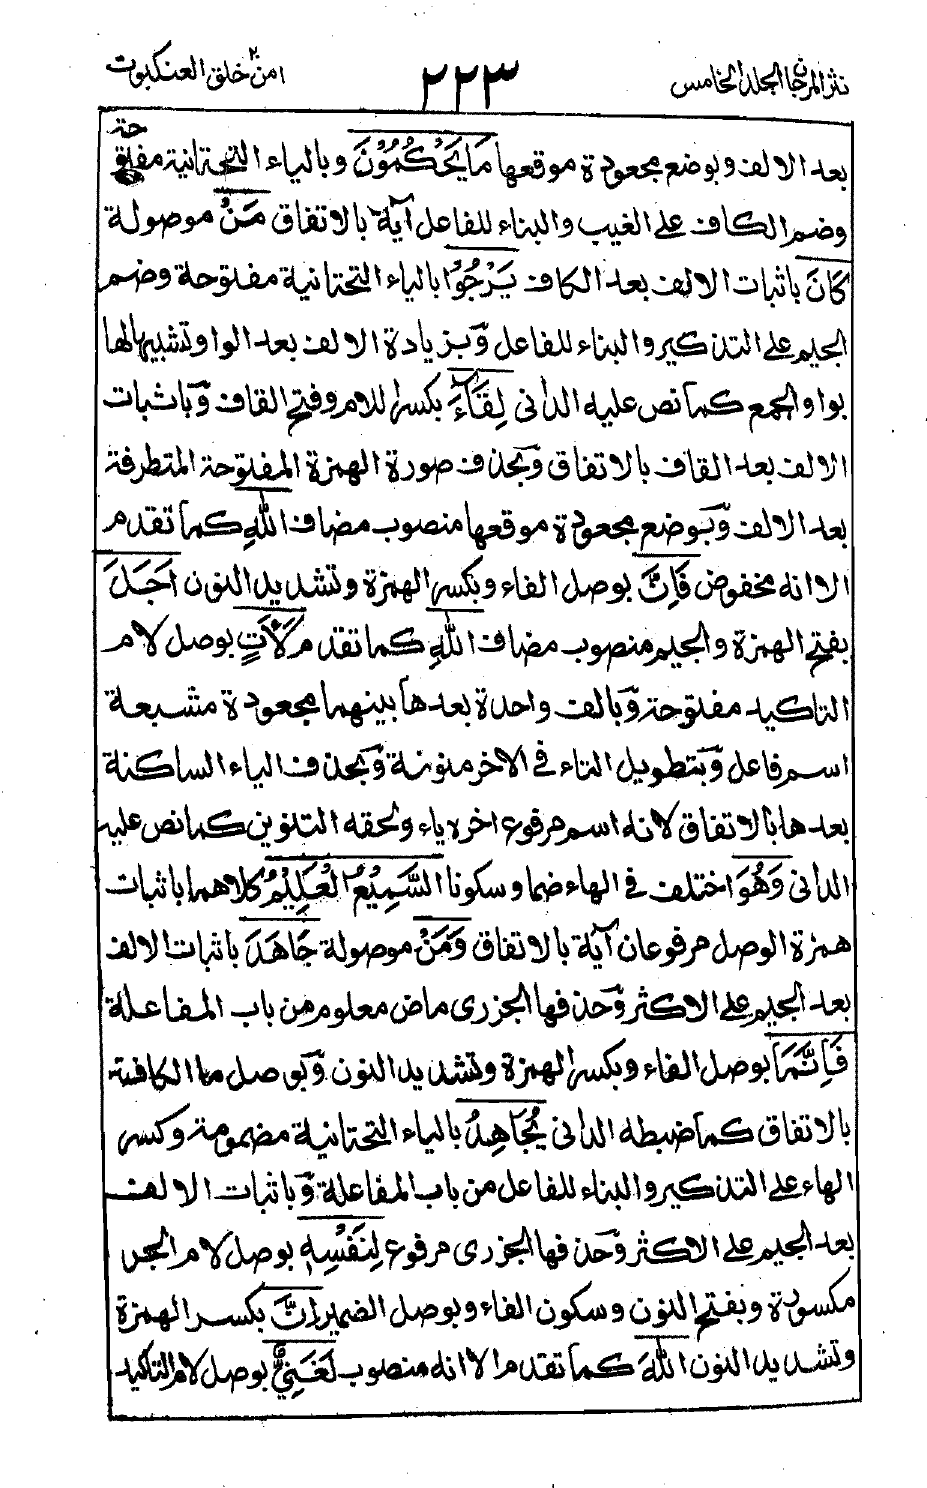 نثر المرجان المجلد الخامس
٢٢٣
امن خلق ٢٠ العنكبوت
بعد الالف وبوضع مجعودة موقعها مَا يَحْكُمُوْنَ وبالياء التحتانية مفتوحة
وضم الكاف على الغيب والبناء للفاعل آية بالاتفاق مَنْ موصولة
كَانَ باثبات الالف بعد الكاف يَرْجُوْا بالياء التحتانية مفتوحة وضم
الجيم على التذكير والبناء للفاعل وبزيادة الالف بعد الواو تشبيها لها
بواو الجمع كما نص عليه الدانى لِقَآءَ بكسر اللام وفتح القاف وباثبات
الالف بعد القاف بالاتفاق وبحذف صورة الهمزة المفتوحة المتطرفة
بعد الالف وبوضع مجعودة موقعها منصوب مضاف اللّٰهِ كما تقدم
الا انه مخفوض فَاِنَّ بوصل الفاء وبكسر الهمزة وتشديد النون اَجَلَ
بفتح الهمزة والجيم منصوب مضاف اللّٰهِ كما تقدم لَاٰتٍ بوصل لام
التاكيد مفتوحة وبالف واحدة بعدها بينهما مجعودة مشبعة
اسم فاعل وبتطويل التاء فى الاخر منونة وبحذف الياء الساكنة
بعدها بالاتفاق لانه اسم مرفوع اخره ياء ولحقه التنوين كما نص عليه
الدانى وَهُوَ اختلف فى الهاء ضما وسكونا السَّمِيْعُ الْعَلِيْمُ كلاهما باثبات
همزة الوصل مرفوعان آية بالاتفاق وَمَنْ موصولة جَاهَدَ باثبات الالف
بعد الجيم على الاكثر وحذفها الجزرى ماض معلوم من باب المفاعلة
فَاِنَّمَا بوصل الفاء وبكسر الهمزة وتشديد النون وبوصل ما الكافة
بالاتفاق كما ضبطه الدانى يُجَاهِدُ بالياء التحتانية مضمومة وكسر
الهاء على التذكير والبناء للفاعل من باب المفاعلة وباثبات الالف
بعد الجيم على الاكثر وحذفها الجزرى مرفوع لِنَفْسِهٖ بوصل لام الجر
مكسورة وبفتح النون وسكون الفاء وبوصل الضمير اِنَّ بكسر الهمزة
وتشديد النون اللّٰهَ كما تقدم الا انه منصوب لَغَنِيٌّ بوصل لام التاكيد